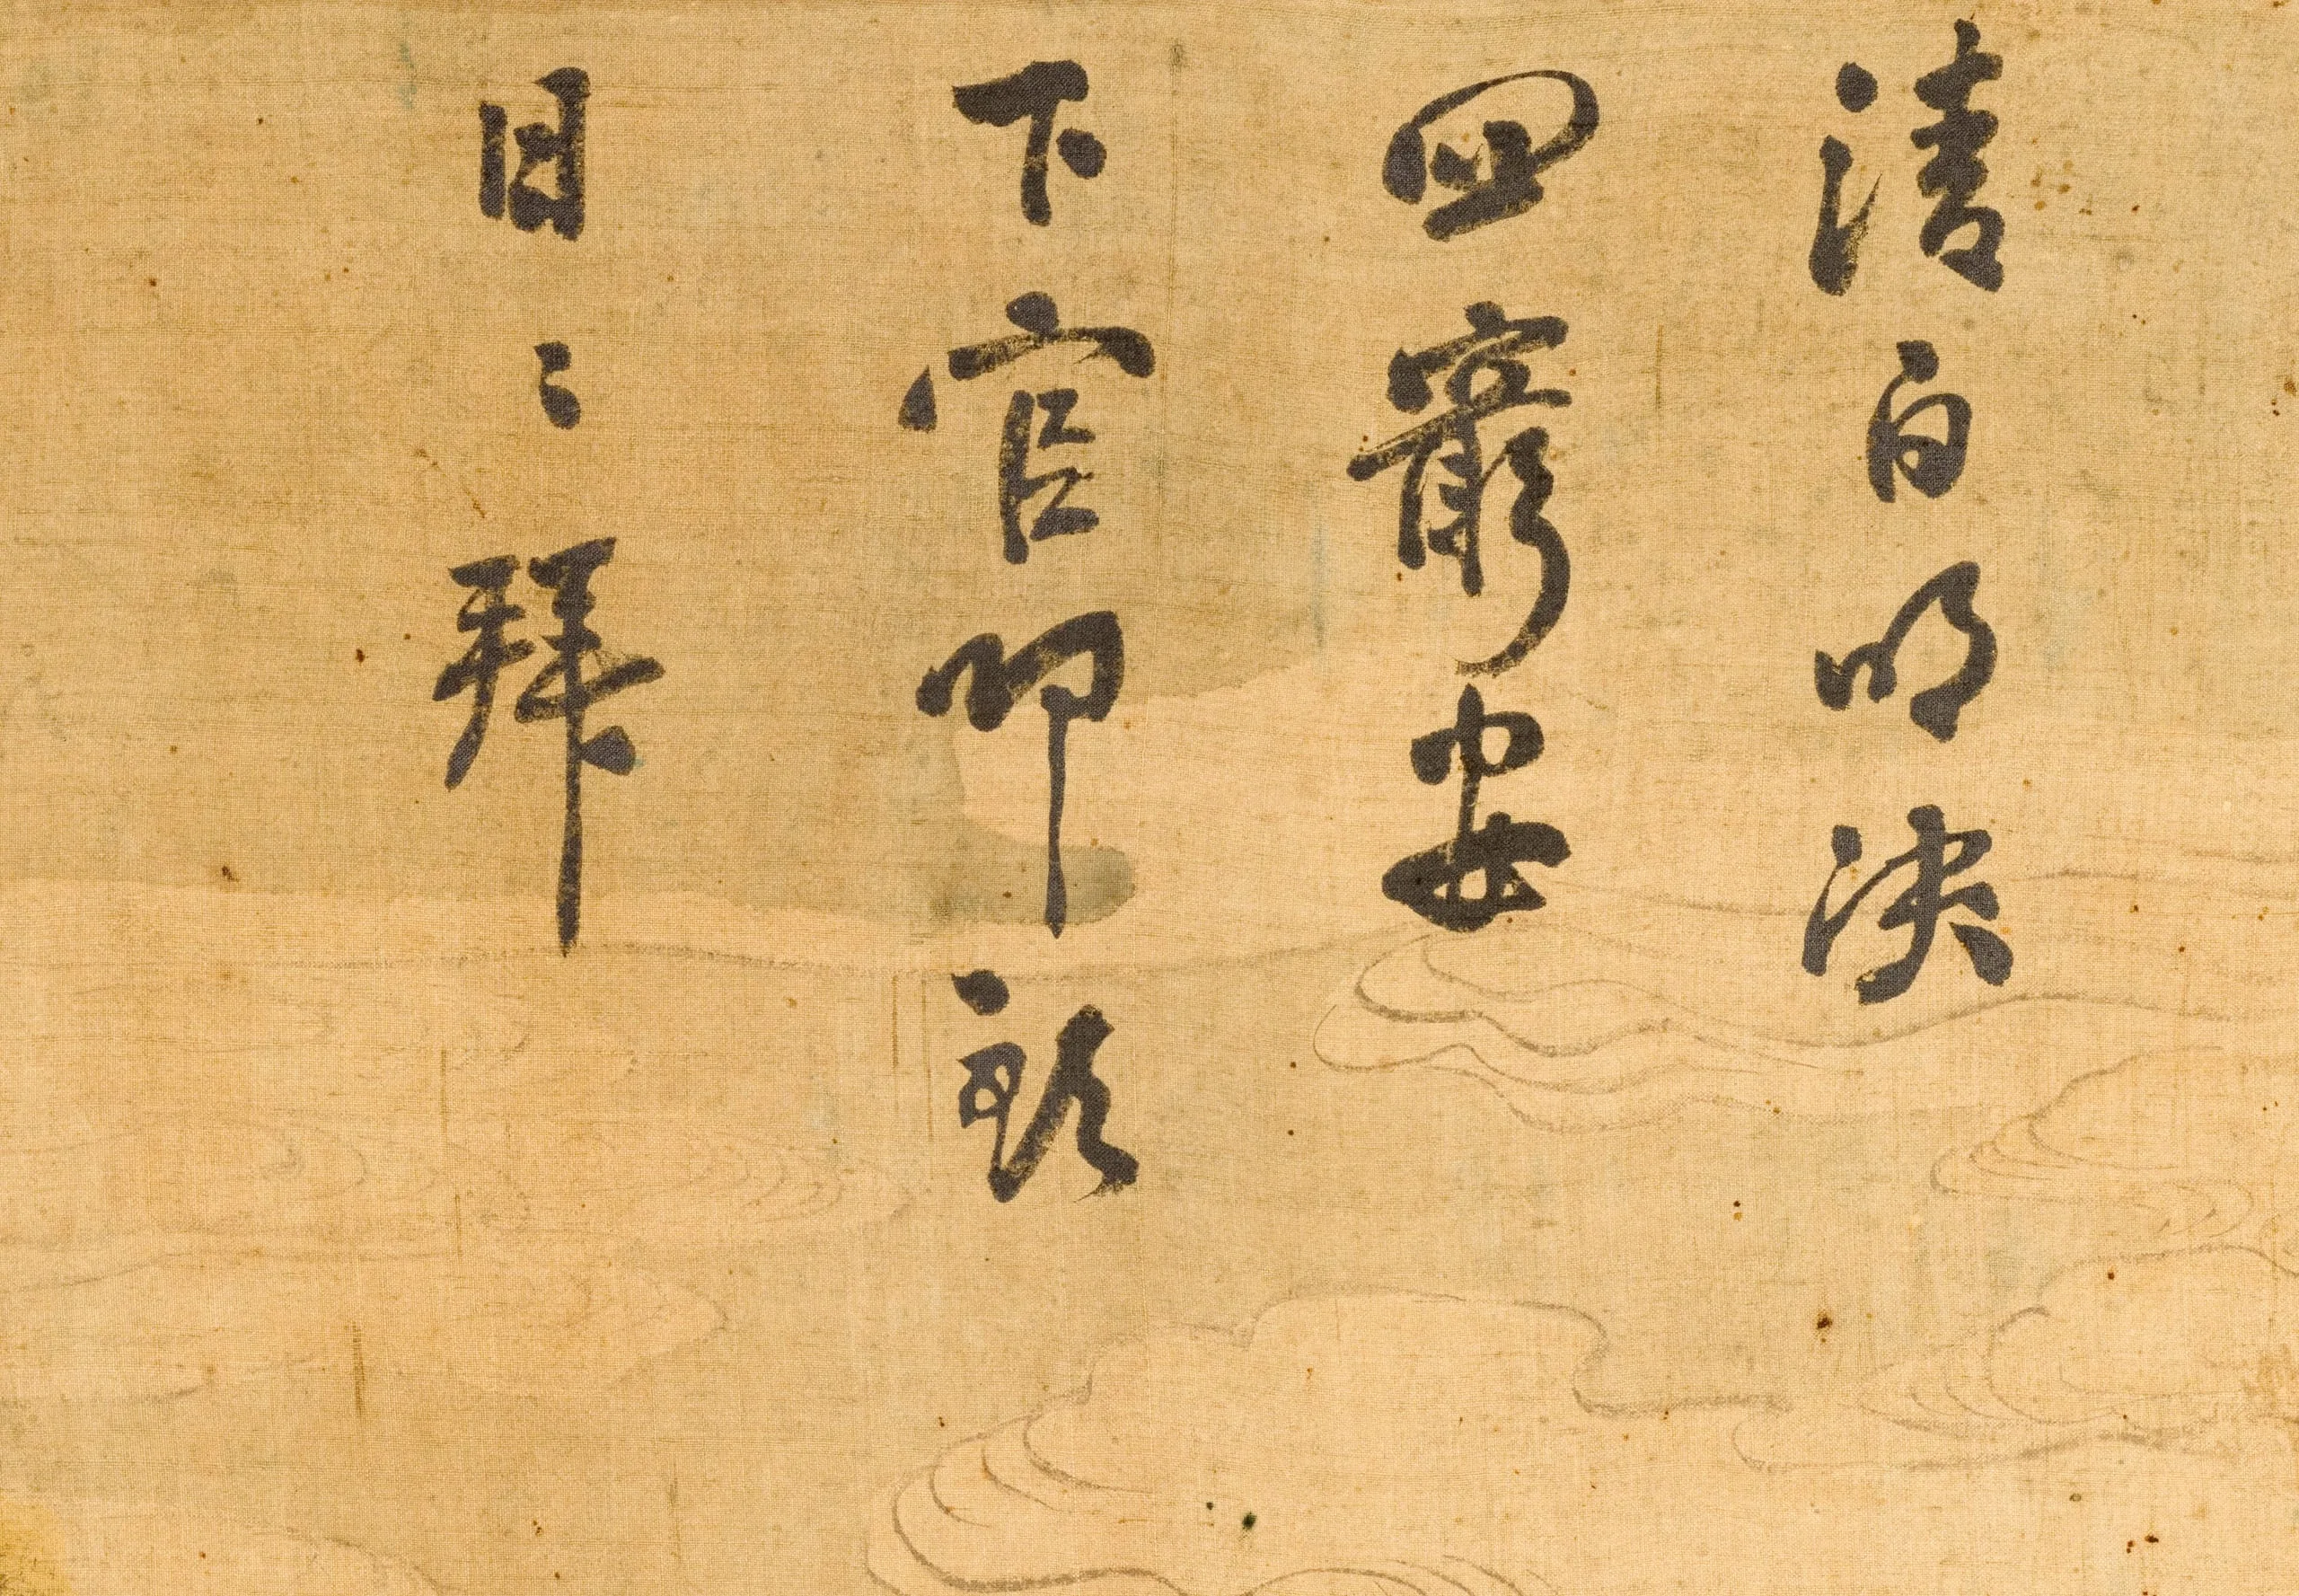 清白明決
四窮安
下官叩頭
目〻拜